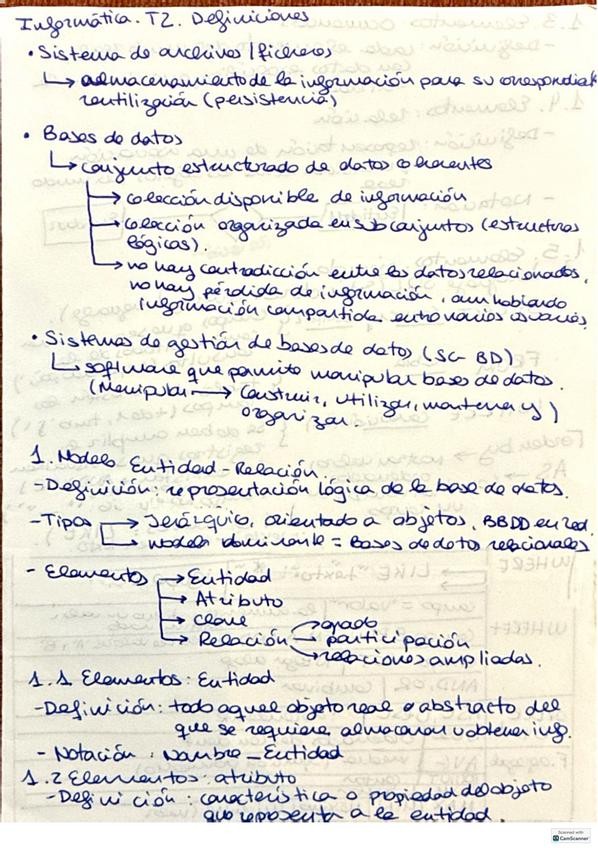 Informática. T2. Definiciones
• Sistema de archivos / ficheros
↳ almacenamiento de la información para su correspondiente
reutilización (persistencia)
• Bases de datos
↳ conjunto estructurado de datos coherentes
→ colección disponible de información
→ colección organizada en subconjuntos (estructuras
lógicas).
→ no hay contradicción entre los datos relacionados,
no hay pérdida de información, aun habiendo
información compartida entre varios usuarios.
• Sistemas de gestión de bases de datos (SG-BD)
↳ software que permite manipular bases de datos.
(Manipular → Construir, utilizar, mantener y
organizar.)
1. Modelo Entidad-Relación.
- Definición: representación lógica de la base de datos.
- Tipos → Jerárquico, orientado a objetos, BBDD en red.
→ modelo dominante = Bases de datos relacionales
- Elementos → Entidad
→ Atributo
→ clave
→ Relación → grado
→ participación
→ relaciones ampliadas.
1.1. Elementos: Entidad
- Definición: todo aquel objeto real o abstracto, del
que se requiere almacenar u obtener inf.
- Notación: Nombre Entidad
1.2 Elementos: atributo
- Definición: característica o propiedad del objeto
que representa a la entidad.
Scanned with
CamScanner